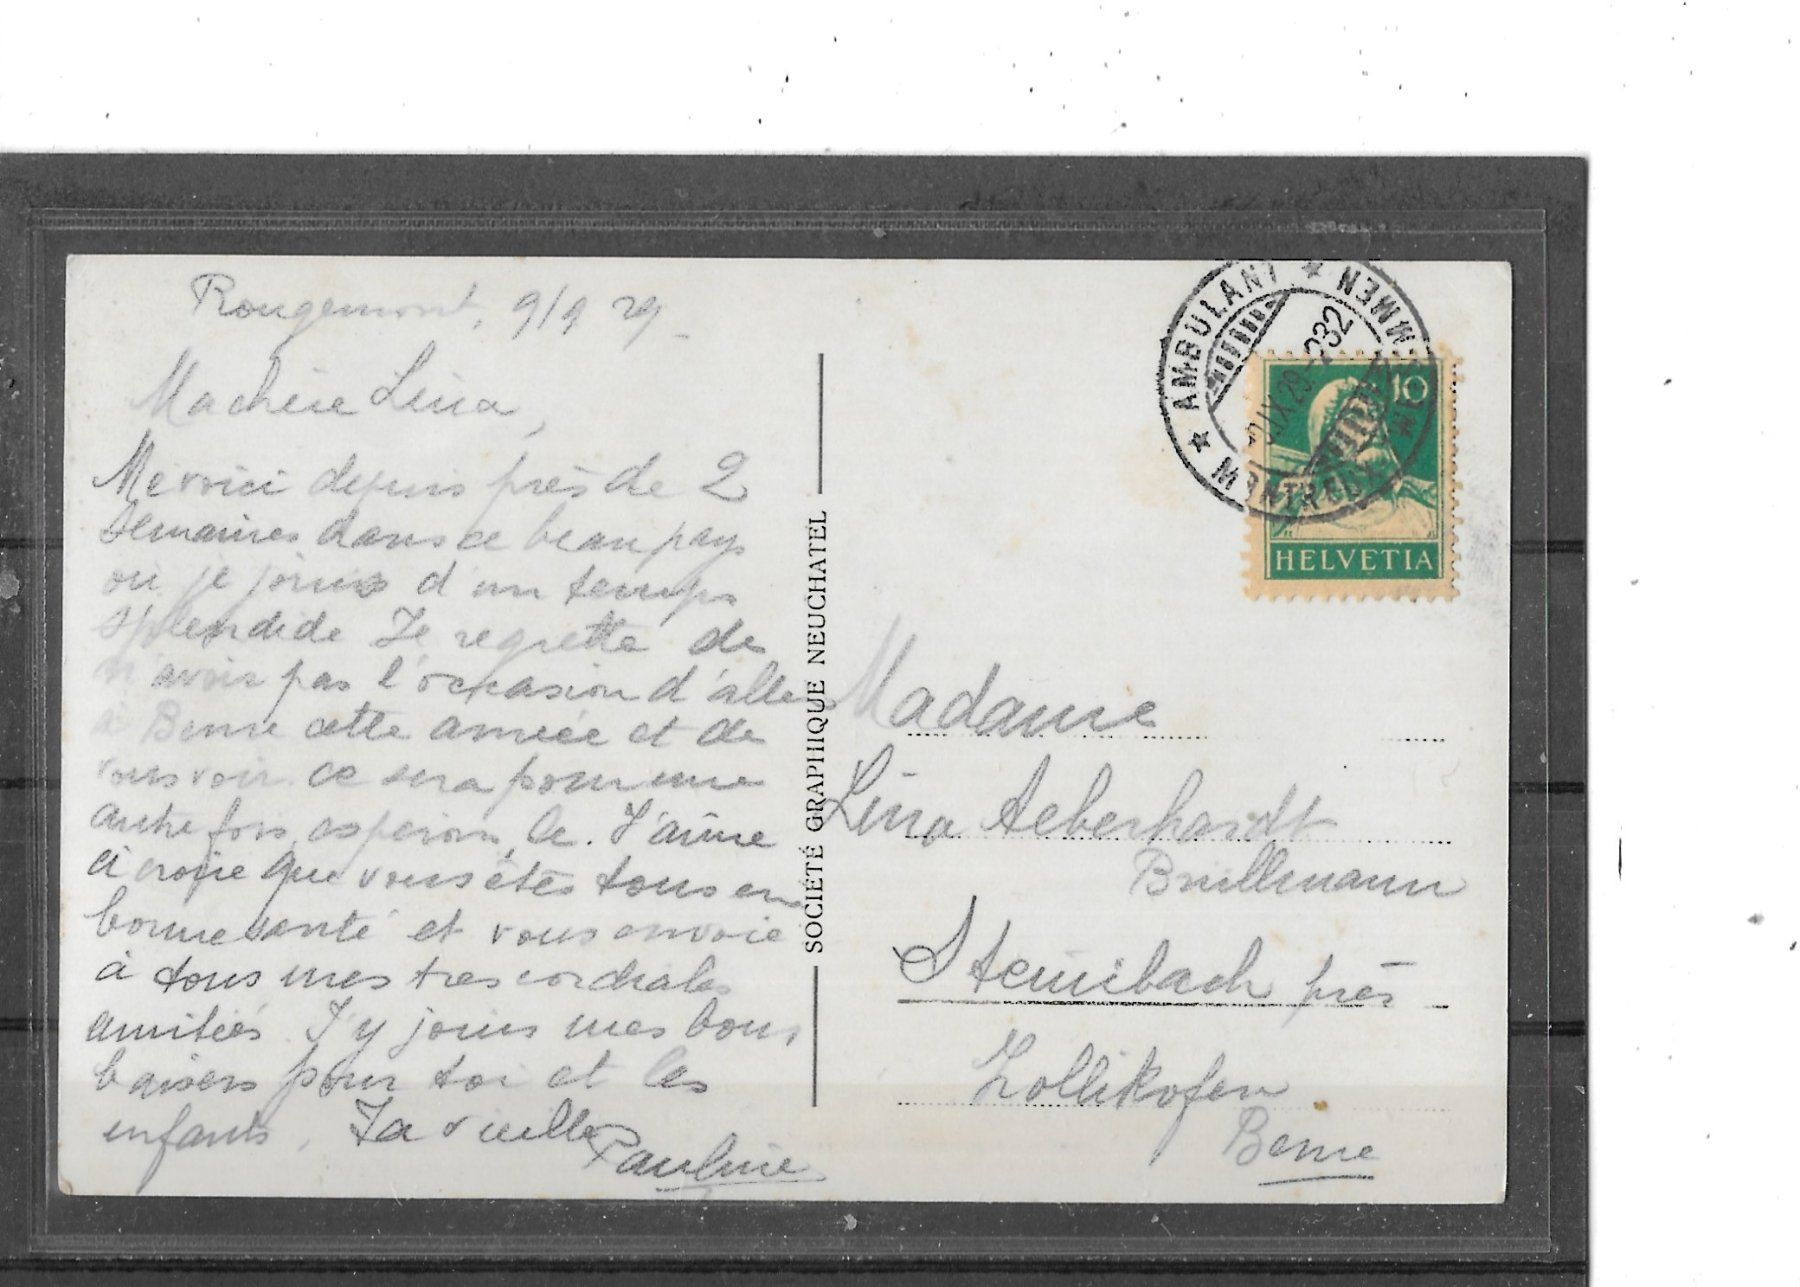 Rougemont, 9/9 29
Ma chère Lina,
Me voici depuis près de 2
semaines dans ce beau pays
où je jouis d'un temps
splendide Je regrette de
n'avoir pas l'occasion d'aller
à Berne cette année et de
vous voir. ce sera pour une
autre fois, espérons le. J'aime
à croire que vous êtes tous en
bonne santé et vous envoie
à tous mes tres cordiales
amitiés. J'y joins mes bons
baisers pour toi et les
enfants. Ta vieille
Pauline
SOCIÉTÉ GRAPHIQUE NEUCHATEL
★ AMBULANT ★
MONTREUX
29
232
10
HELVETIA
Madame
Lina Aeberhardt
Brüllmann
Steinibach près
Zollikofen
Berne